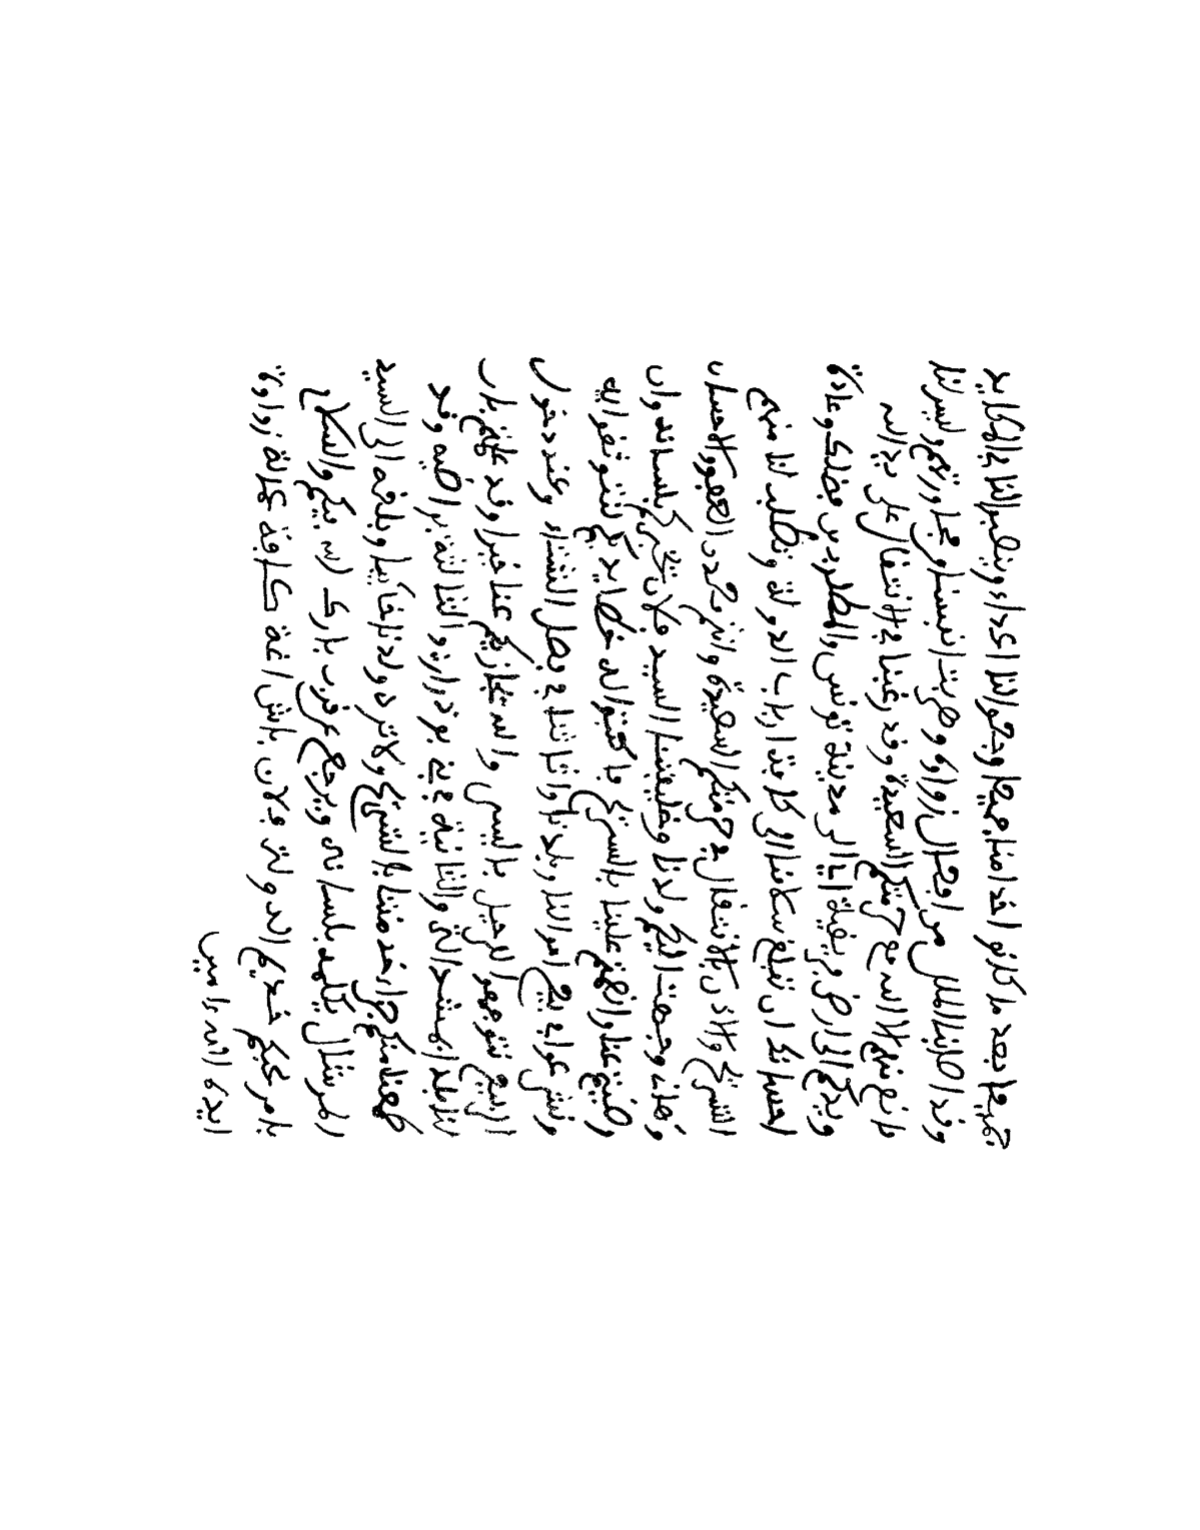 جميعا بعد ما كانوا اخدامنا جميعا وجعوا لنا اعداء وينصبوا لنا في المكايد
وقد اصابنا الملل من افعال زواوه وضربت انفسنا من مجاورتهم وليس لنا
مانع منهم الا الله مع حرمتكم السعيدة وقد رغبنا في الانتقال على يد الله
ويدكم الى ارض فريقية ايالى مدينة تونس والمطلوب من فضلك وعادة
احسانك ان تبلغ سلامنا الى كافة ارباب الدولة وتطلب لنا منهم
التسريح والاذن بالانتقال بحرمتكم السعيدة وانتم محمدن العفو والاحسان
وهاذ وجهت اليكم ولدنا وخليفتنا السيد فلان نخبركم بلسانه وان
رضيتم عنا وانعمتم علينا بالتسريح فاكتبوا له خط ايديكم لنتوثقوا به
ونشرعوا في بيع امر النا وبلدنا واثاثنا في فصل الشتاء وعند دخول
الربيع نتوجهوا للرحيل باليسر والله يجازيكم عنا خيرا وقد علمتم بان
لنا بلد انمشد التي والثانية في بني بوذرار والثالثة براضيه وقد
طعنا منكم جواز خدمتنا بالتسريح ولا ترد ولدنا خائبا وبلغه الى السيد
المرشال يكلمه بلسانه ويرجع عن قرب بارك الله فيكم والسلام
بامر محبكم خديم الدولة فلان باش اغة كافة عمالة زواوة
ايده الله ءامين